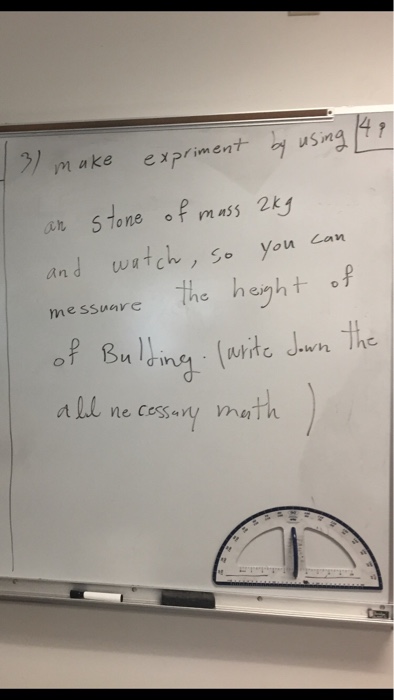 3) make expriment by using 4 p
an stone of mass 2kg
and watch, so you can
messuare the height of
of Bulding. (write down the
all necessary math)